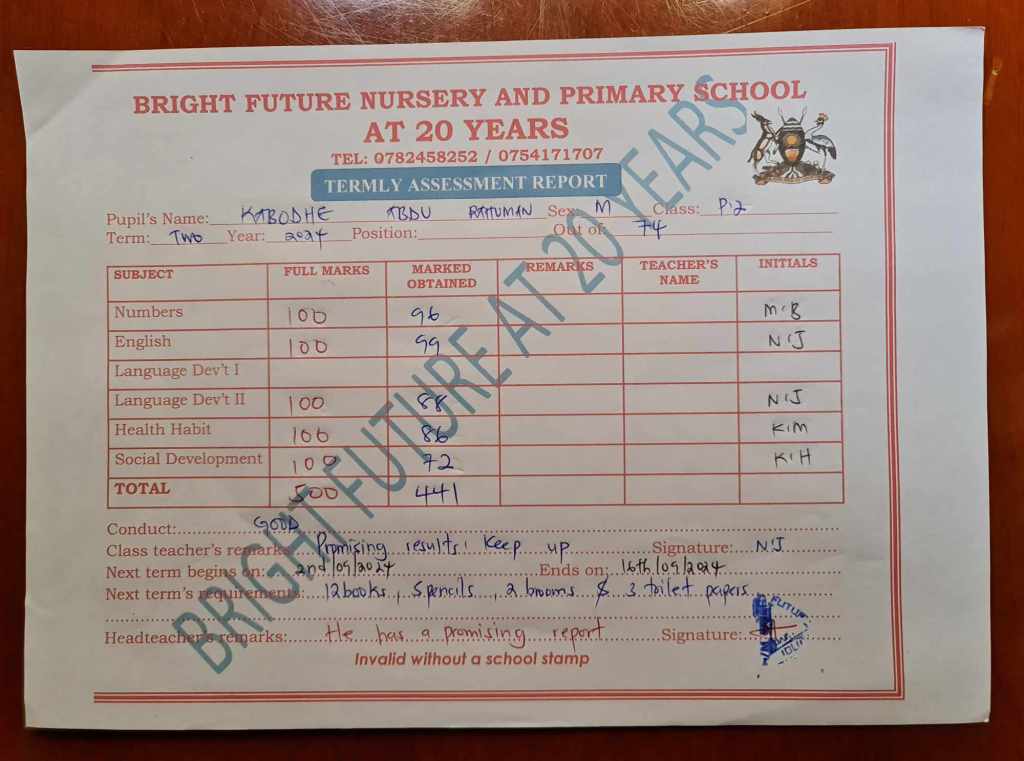 BRIGHT FUTURE NURSERY AND PRIMARY SCHOOL
AT 20 YEARS
TEL: 0782458252 / 0754171707
TERMLY ASSESSMENT REPORT
Pupil's Name: KABODHE ABDU RAHUMAN Sex: M Class: P.2
Term: TWO Year: 2024 Position: Out of: 74
SUBJECT FULL MARKS MARKED OBTAINED REMARKS TEACHER'S NAME INITIALS
Numbers 100 96 M.B
English 100 99 N.J
Language Dev't I
Language Dev't II 100 88 N.J
Health Habit 100 86 K.M
Social Development 100 72 K.H
TOTAL 500 441
Conduct: GOOD
Class teacher's remarks: Promising results. Keep up Signature: N.J
Next term begins on: 2nd/09/2024 Ends on: 16th/09/2024
Next term's requirements: 12 books, 5 pencils, 2 brooms & 3 toilet papers
Headteacher's remarks: He has a promising report Signature:
Invalid without a school stamp
BRIGHT FUTURE AT 20 YEARS
FUTURE